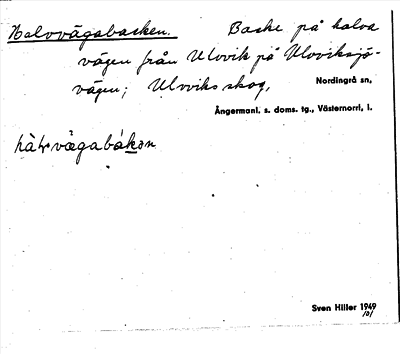 Halvvägabacken. Backe på halva
vägen från Ulvvik på Ulvviksjö-
vägen; Ulvviks skog, Nordingrå sn,
Ångermanl. s. doms. tg., Västernorrl. l.
Sven Hiller 1949